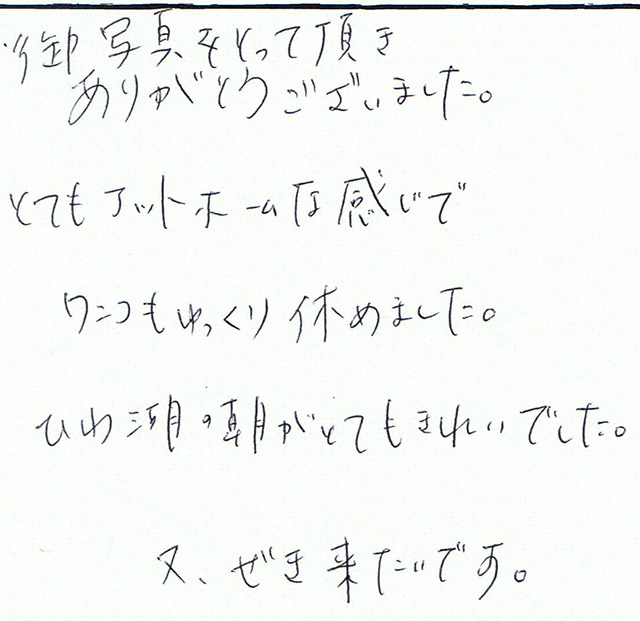 御写真をとって頂き
ありがとうございました。
とてもアットホームな感じで
ワンコもゆっくり休めました。
びわ湖の朝がとてもきれいでした。
又、ぜき来たいです。